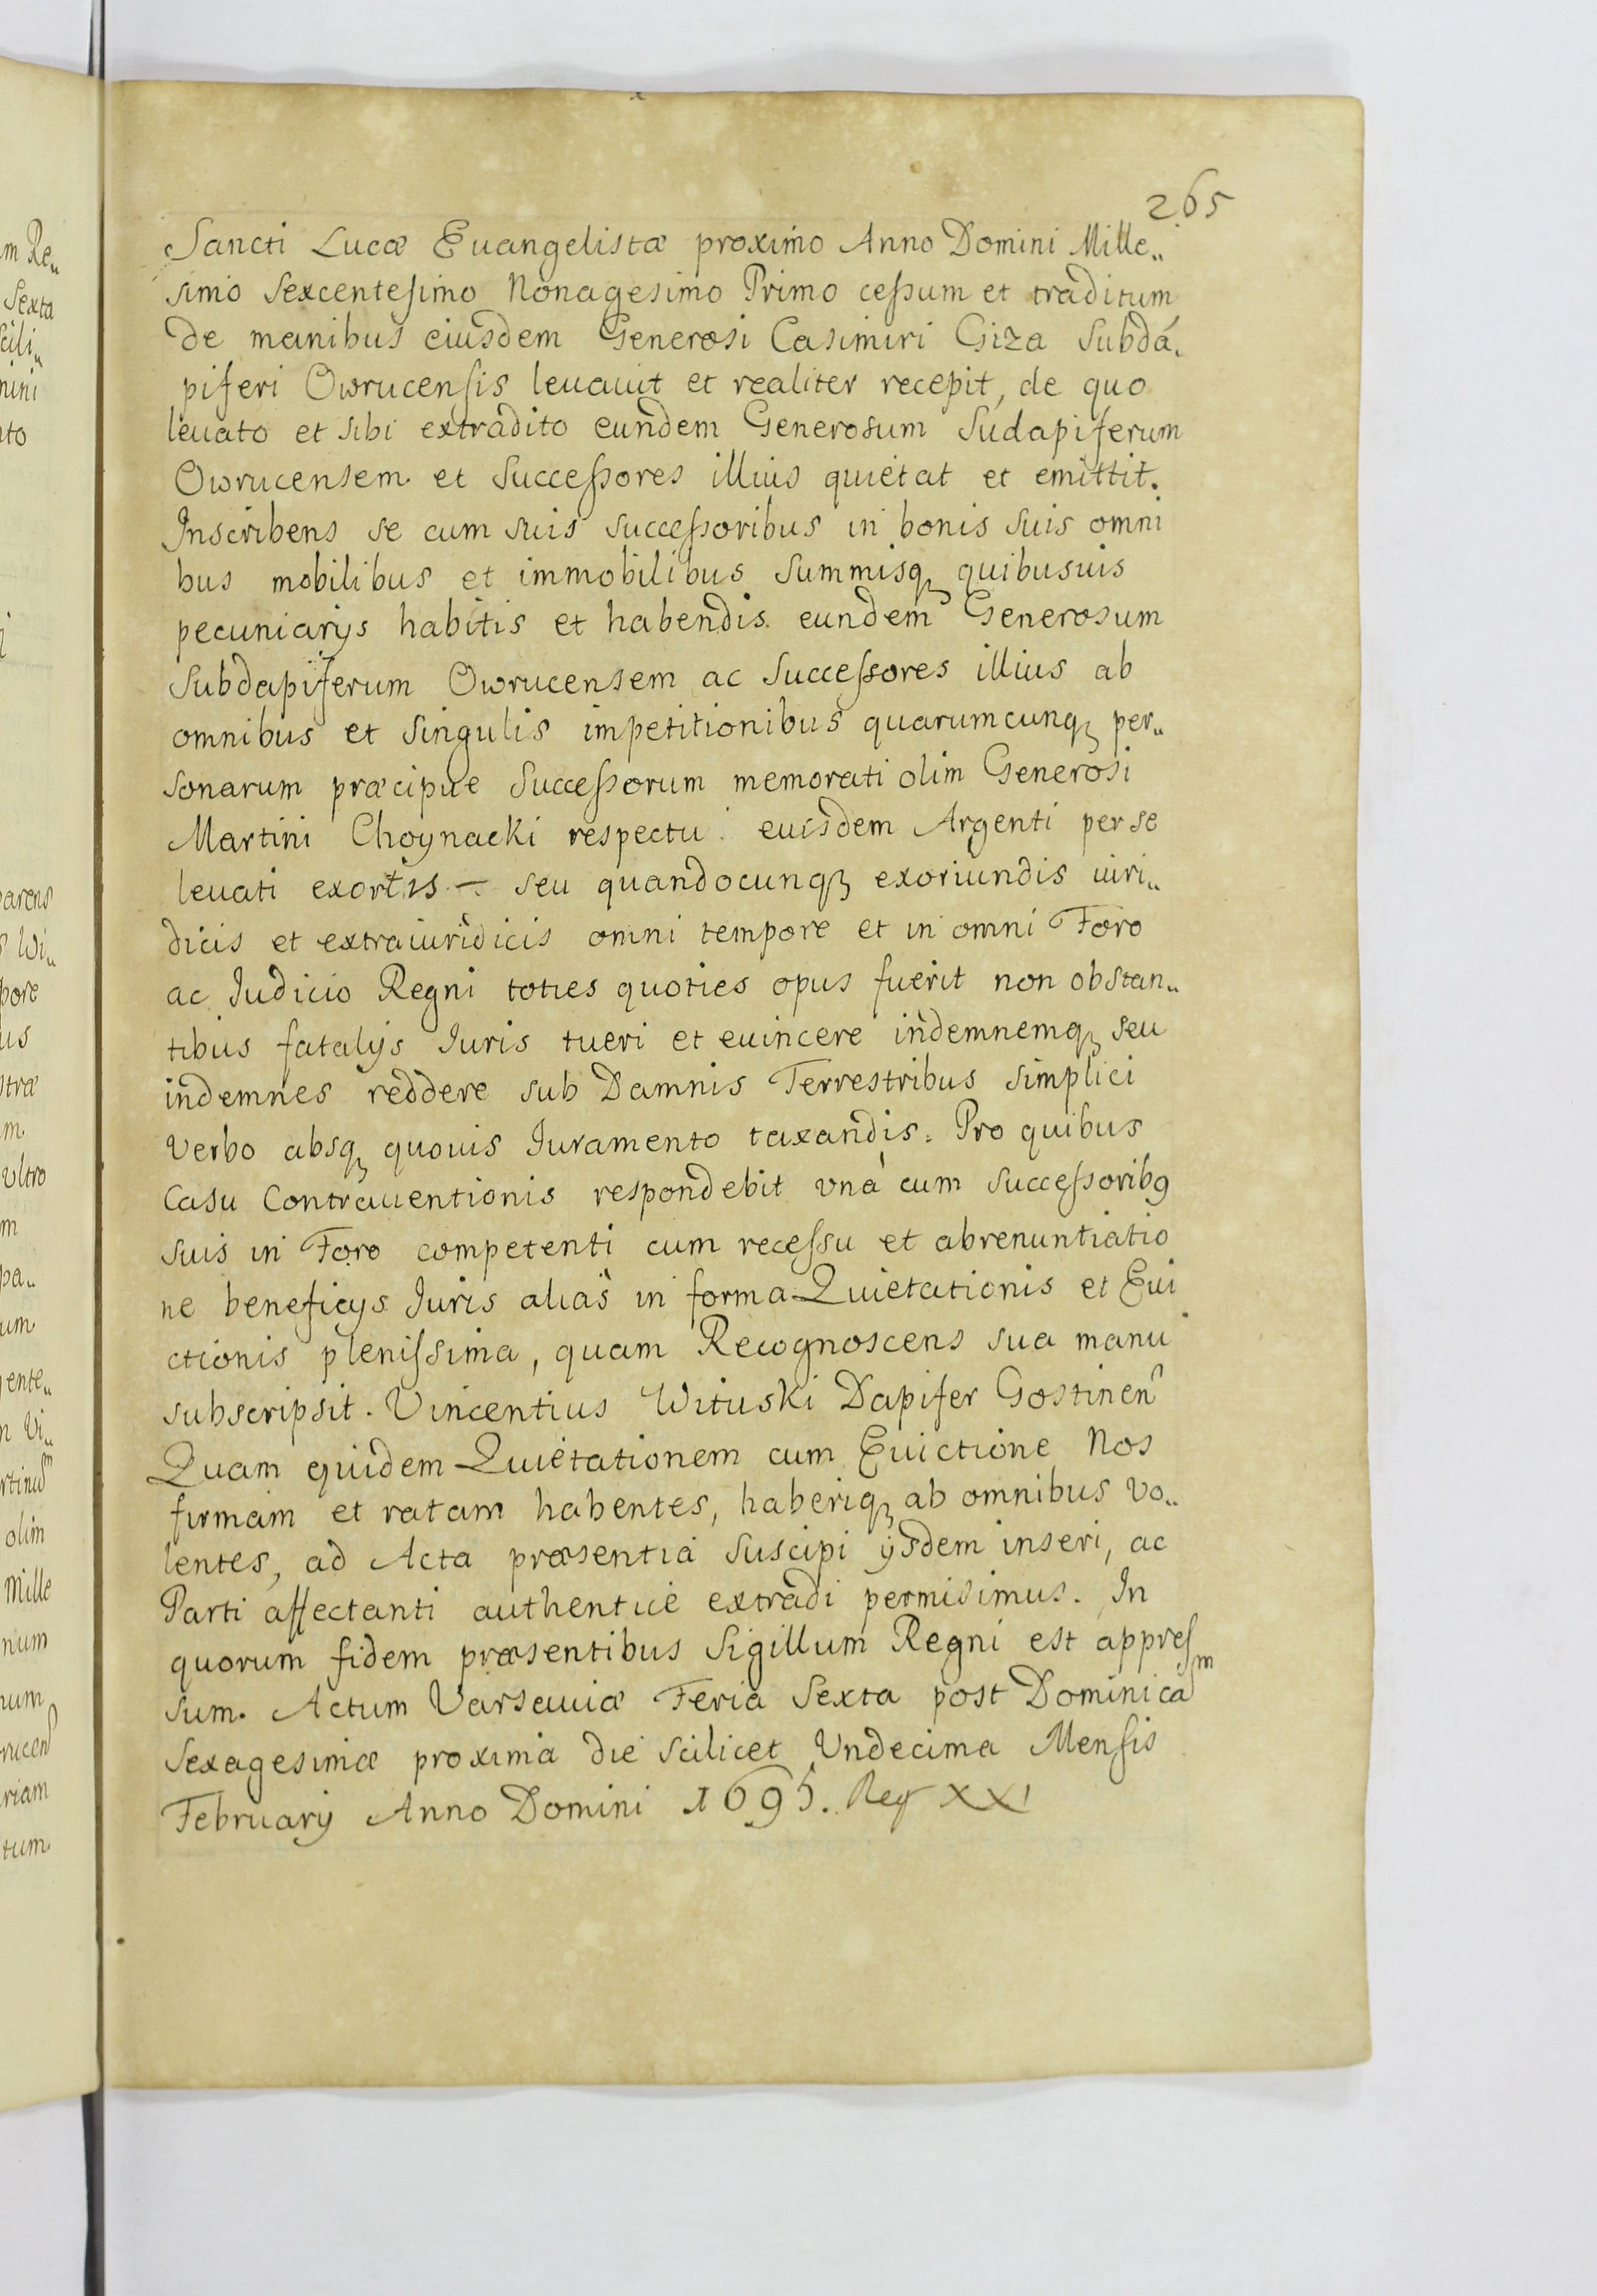 265
Sancti Lucæ Euangelistæ proximo Anno Domini Mille„
simo Sexcentesimo Nonagesimo Primo cessum et traditum
de manibus eiusdem Generosi Casimiri Giza Subda„
piferi Owrucensis leuauit et realiter recepit, de quo
leuato et sibi extradito eundem Generosum Sudapiferum
Owrucensem et Successores illius quietat et emittit.
Inscribens se cum suis successoribus in bonis suis omni
bus mobilibus et immobilibus summisq quibusuis
pecuniarijs habitis et habendis eundem Generosum
Subdapiferum Owrucensem ac Successores illius ab
omnibus et singulis impetitionibus quarumcunq per„
sonarum præcipue Successorum memorati olim Generosi
Martini Choynacki respectu euisdem Argenti per se
leuati exortis — seu quandocunq exoriundis iuri„
dicis et extraiuridicis omni tempore et in omni Foro
ac Iudicio Regni toties quoties opus fuerit non obstan„
tibus fatalijs Iuris tueri et euincere indemnemq seu
indemnes reddere sub Damnis Terrestribus simplici
verbo absq quouis Iuramento taxandis. Pro quibus
Casu Contrauentionis respondebit vnà cum successorib9
suis in Foro competenti cum recessu et abrenuntiatio
ne beneficijs Iuris alias in forma Quietationis et Eui
ctionis plenissima, quam Recognoscens sua manu
subscripsit. Vincentius Wituski Dapifer Gostinen
Quam quidem Quietationem cum Euictione Nos
firmam et ratam habentes, haberiq ab omnibus vo„
lentes, ad Acta præsentia suscipi ijsdem inseri, ac
Parti affectanti authenticè extradi permisimus. In
quorum fidem præsentibus Sigillum Regni est appres
sum. Actum Varsauiæ Feria Sexta post Dominicam
Sexagesimæ proxima die scilicet Vndecima Mensis
Februarij Anno Domini 1695. Reg XXI